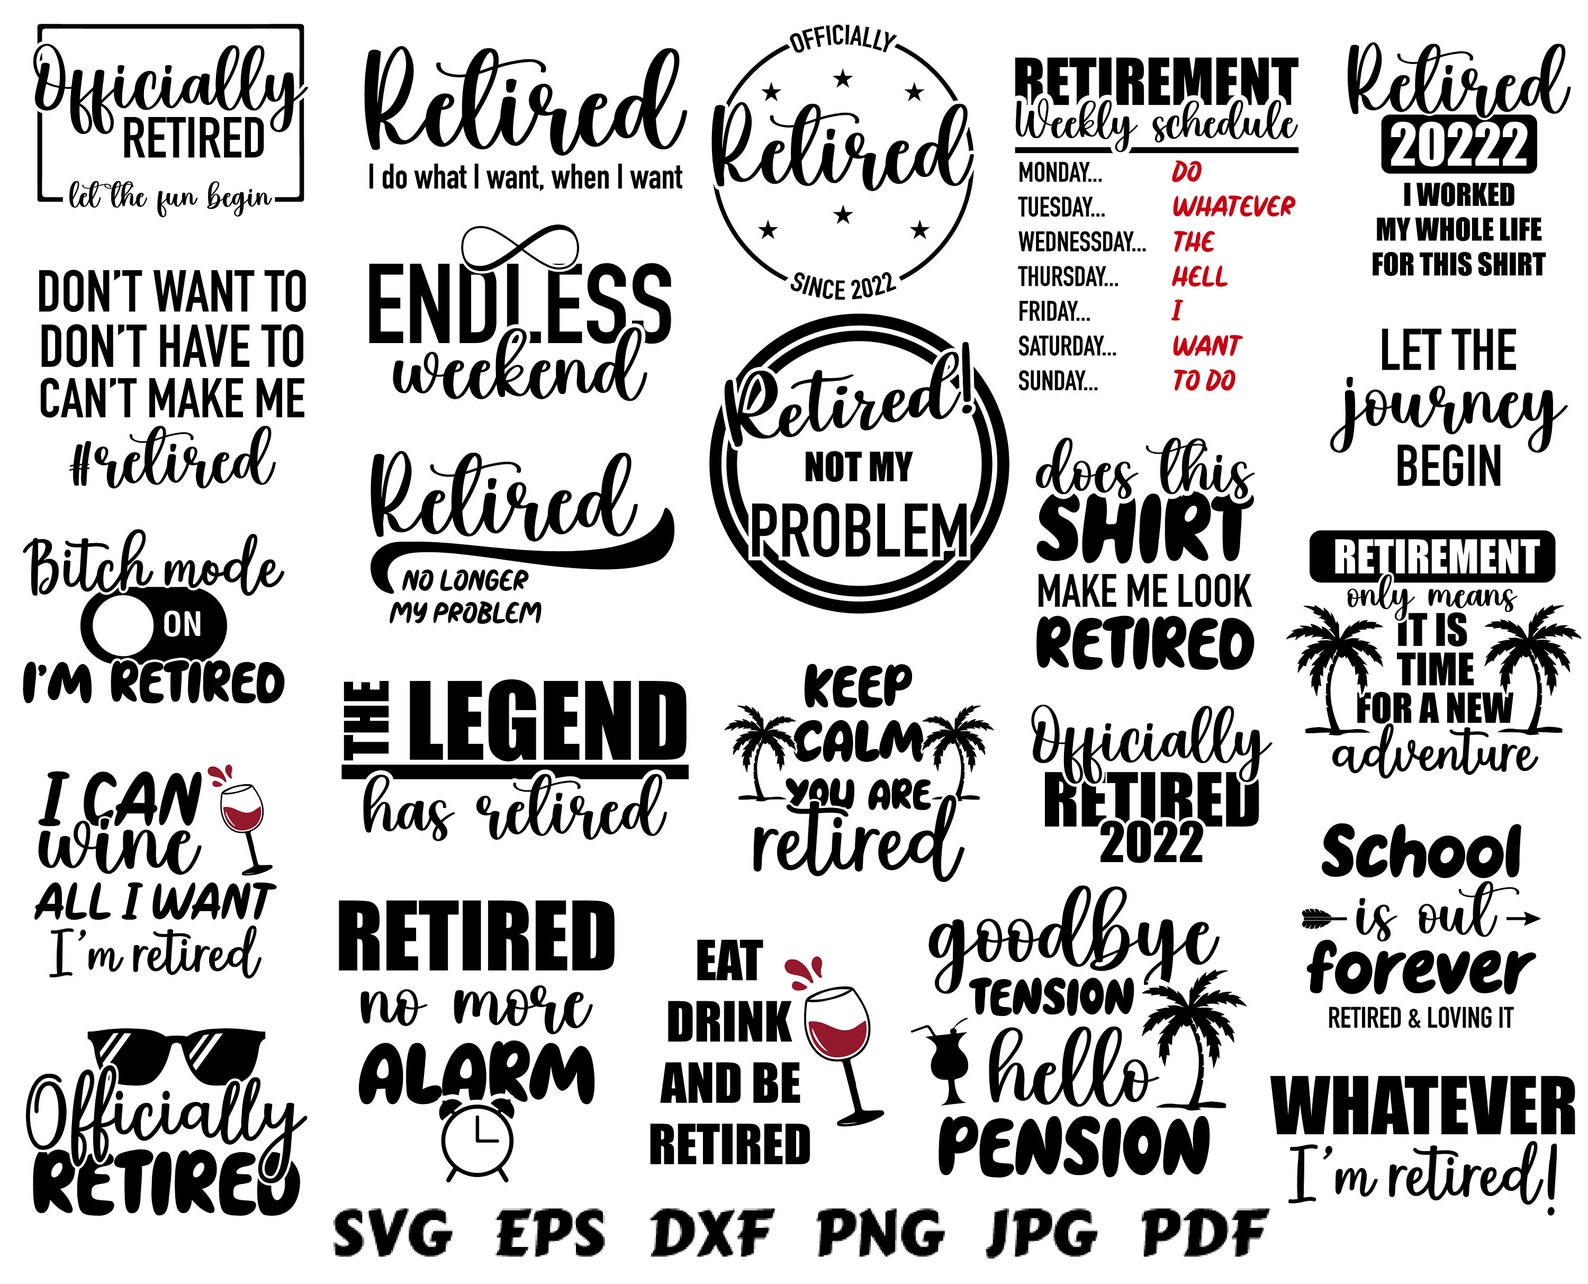 Officially
RETIRED
let the fun begin
DON'T WANT TO
DON'T HAVE TO
CAN'T MAKE ME
#retired
Bitch mode
ON
I'M RETIRED
I CAN
wine
ALL I WANT
I'm retired
Officially
RETIRED
Retired
I do what I want, when I want
ENDLESS
weekend
Retired
NO LONGER
MY PROBLEM
THE LEGEND
has retired
RETIRED
no more
ALARM
OFFICIALLY
Retired
SINCE 2022
Retired!
NOT MY
PROBLEM
KEEP
CALM
YOU ARE
retired
EAT
DRINK
AND BE
RETIRED
RETIREMENT
Weekly schedule
MONDAY... DO
TUESDAY... WHATEVER
WEDNESDAY... THE
THURSDAY... HELL
FRIDAY... I
SATURDAY... WANT
SUNDAY... TO DO
does this
SHIRT
MAKE ME LOOK
RETIRED
Officially
RETIRED
2022
goodbye
TENSION
hello
PENSION
Retired
20222
I WORKED
MY WHOLE LIFE
FOR THIS SHIRT
LET THE
journey
BEGIN
RETIREMENT
only means
IT IS
TIME
FOR A NEW
adventure
School
is out
forever
RETIRED & LOVING IT
WHATEVER
I'm retired!
SVG EPS DXF PNG JPG PDF